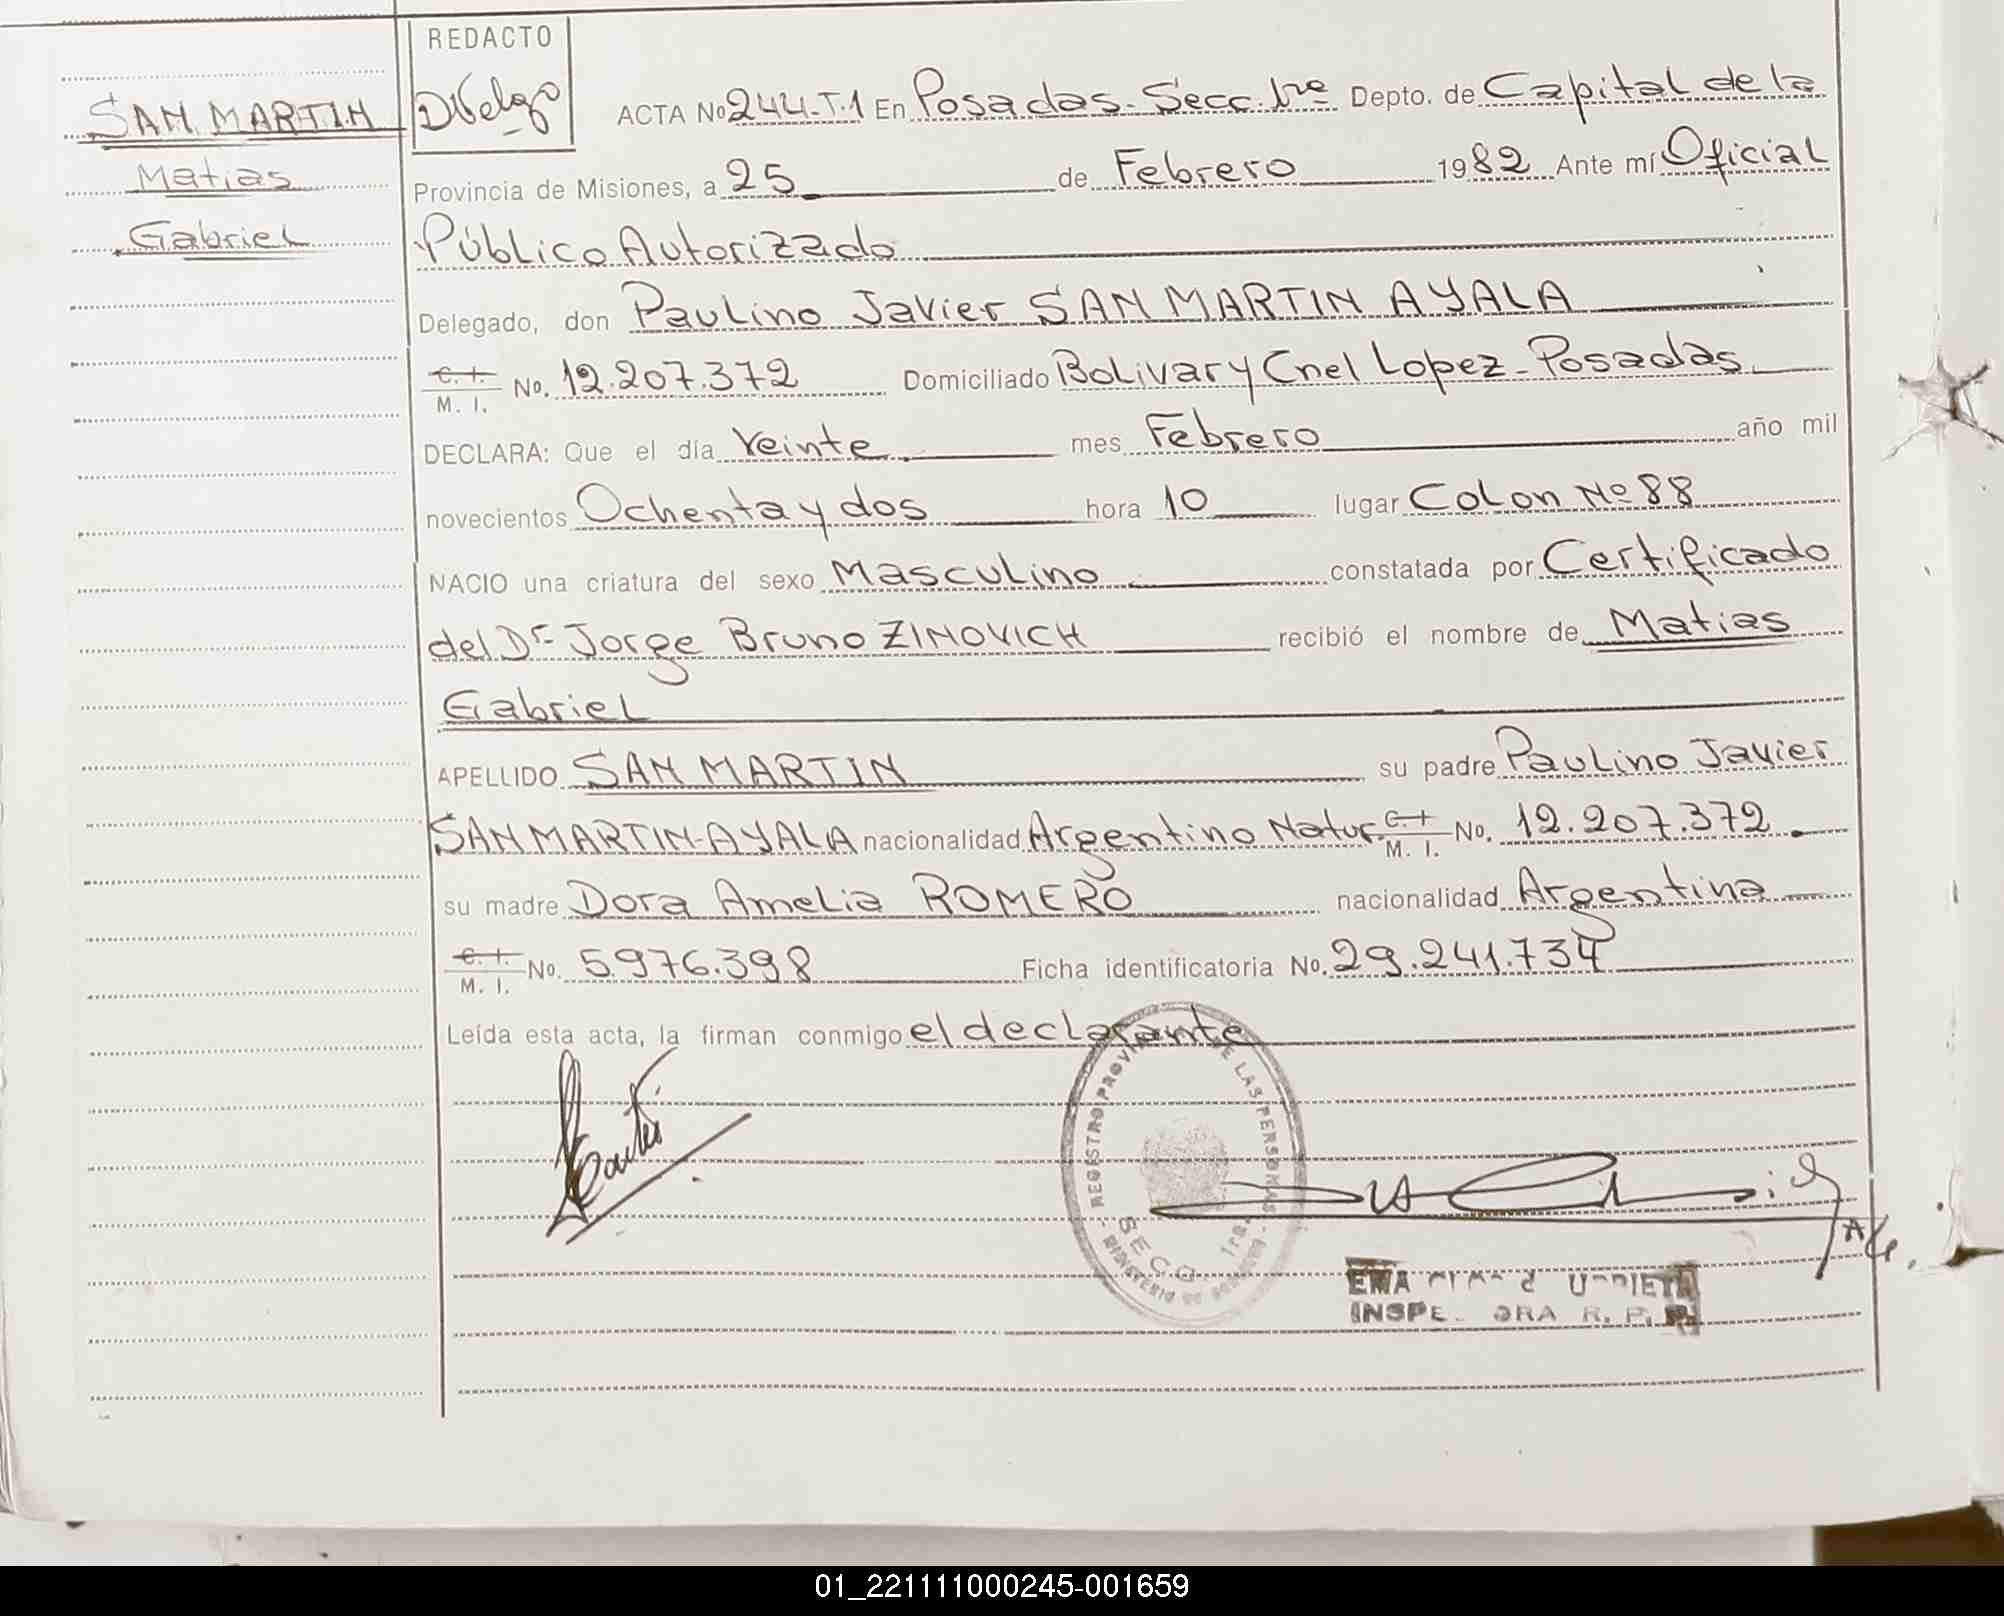 REDACTO
SAN MARTIN
Matias
Gabriel
ACTA No 244-T.1 En Posadas-Secc. 1ra Depto. de Capital de la
Provincia de Misiones, a 25 de Febrero 1982 Ante mí Oficial
Público Autorizado
Delegado, don Paulino Javier SAN MARTIN AYALA
C. I. M. I. No. 12.207.372 Domiciliado Bolivar y Cnel Lopez-Posadas
DECLARA: Que el día veinte mes Febrero año mil
novecientos Ochenta y dos hora 10 lugar Colon Nº 88
NACIO una criatura del sexo Masculino constatada por Certificado
del Dr Jorge Bruno ZINOVICH recibió el nombre de Matias
Gabriel
APELLIDO SAN MARTIN su padre Paulino Javier
SAN MARTIN-AYALA nacionalidad Argentino Natur. C. I. M. I. No. 12.207.372
su madre Dora Amelia ROMERO nacionalidad Argentina
C. I. M. I. No. 5.976.398 Ficha identificatoria No. 29.241.734
Leída esta acta, la firman conmigo el declarante
REGISTRO DE LAS PERSONAS
SECC. 1ra.
R. P.
01_221111000245-001659